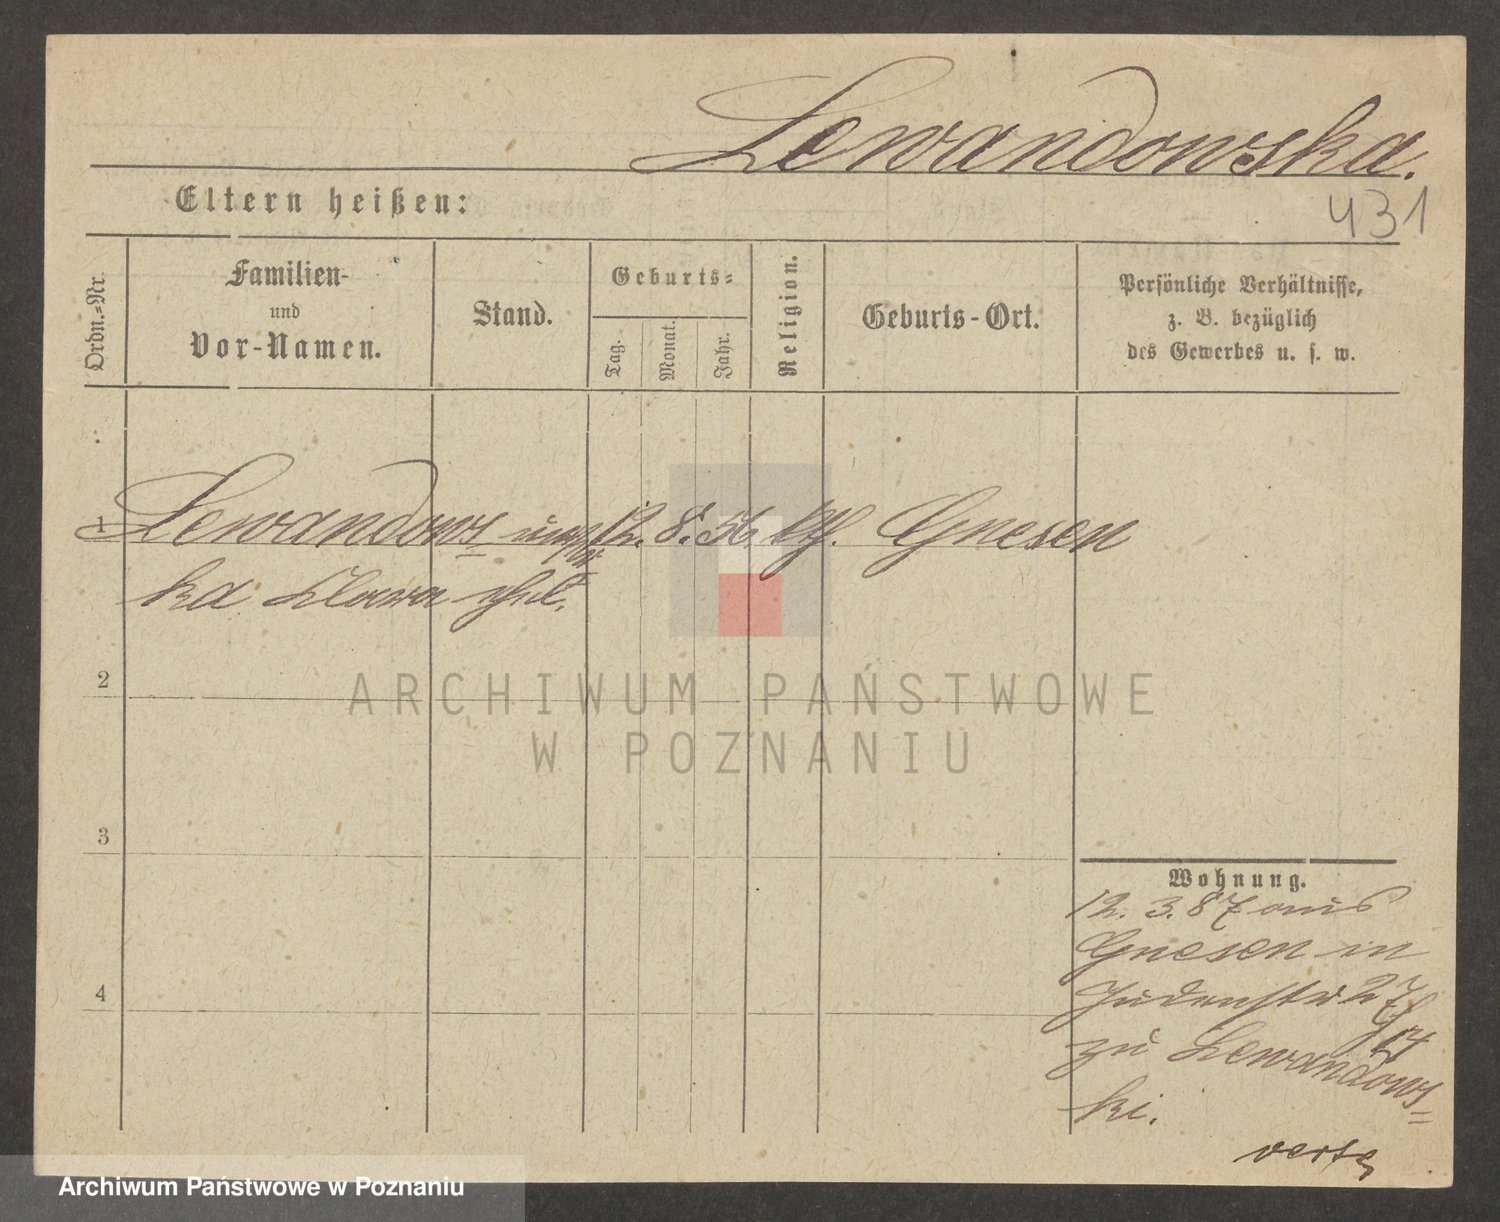 Lewandowska.
Eltern heißen:
431
Ordn.-Nr.
Familien-
und
Vor-Namen.
Stand.
Geburts-
Tag.
Monat.
Jahr.
Religion.
Geburts-Ort.
Persönliche Verhältnisse,
z. B. bezüglich
des Gewerbes u. s. w.
1 Lewandows- 12. 8. 56. kth. Gnesen
ka
2
ARCHIWUM PAŃSTWOWE
W POZNANIU
3
4
Wohnung.
12. 3. 87 aus
Gnesen in
Judenstr 27
zu Lewandows-
ki.
verte
Archiwum Państwowe w Poznaniu